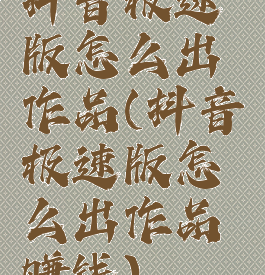 抖音极速
版怎么出
作品(抖音
极速版怎
么出作品
赚钱)